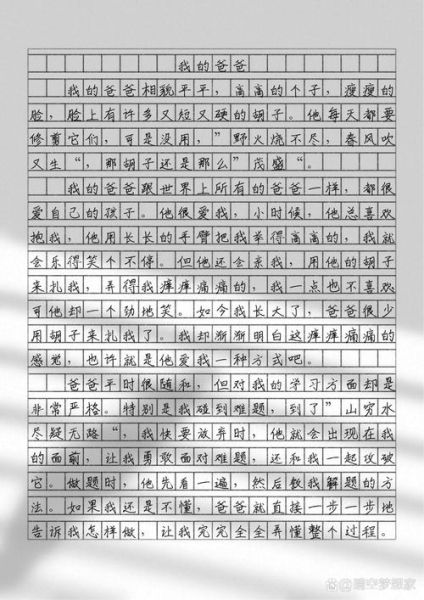 我的爸爸
我的爸爸相貌平平，高高的个子，瘦瘦的
脸，脸上有许多又短又硬的胡子。他每天都要
修剪它们，可是没用，”野火烧不尽，春风吹
又生“，那胡子还是那么”茂盛“。
我的爸爸跟世界上所有的爸爸一样，都很
爱自己的孩子。他很爱我，小时候，他总喜欢
抱我，他用长长的手臂把我举得高高的，我就
会乐得笑个不停。但他还会亲我，用他的胡子
来扎我，弄得我痒痒痛痛的，我一点也不喜欢
可他却一个劲地笑。如今我长大了，爸爸很少
用胡子来扎我了。我却渐渐明白这痒痒痛痛的
感觉，也许就是他爱我一种方式吧。
爸爸平时很随和，但对我的学习方面却是
非常严格。特别是我碰到难题，到了”山穷水
尽疑无路“，我快要放弃时，他就会出现在我
的面前，让我勇敢面对难题，还和我一起攻破
它。做题时，他先看一遍，然后教我解题的方
法。如果我还是不懂，爸爸就直接一步一步地
告诉我怎样做，让我完完全全弄懂整个过程。
@晴空梦想家